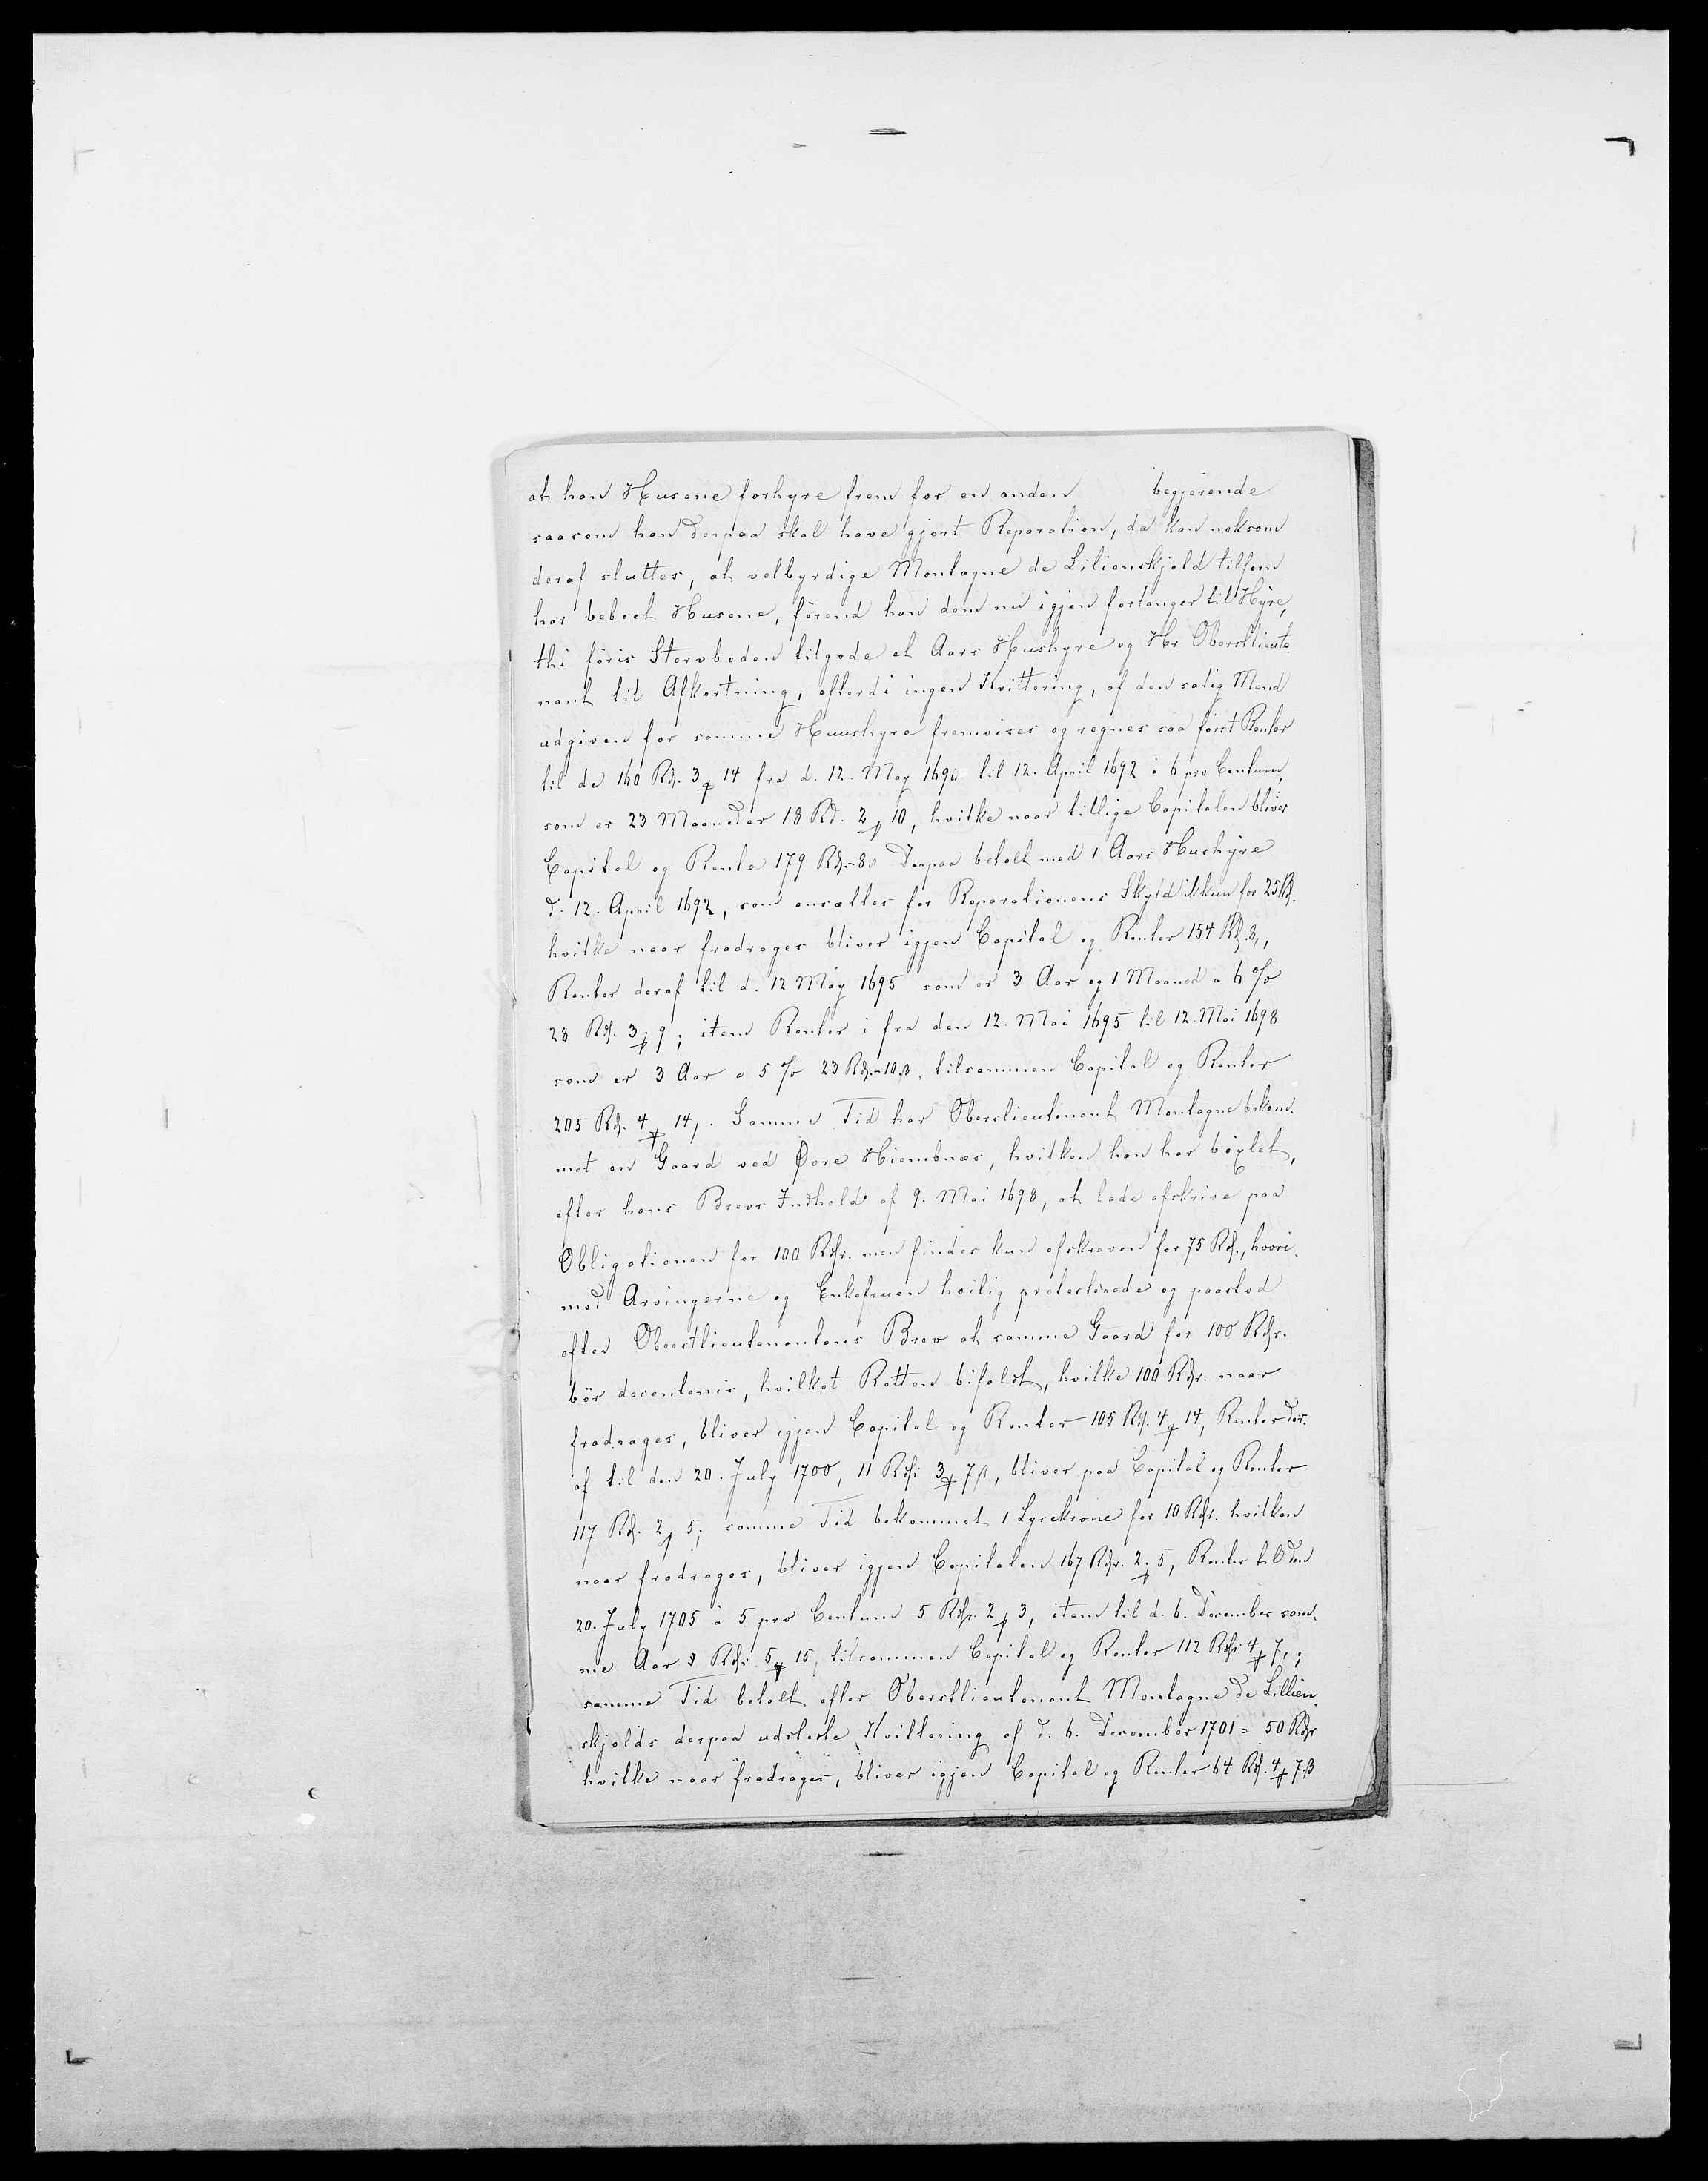 at han Husene forhyre frem for en anden begjerende
saasom han derpaa skal have gjort Reparation, da kan noksom
deraf sluttes, at velbyrdige Montagne de Lilienskjold tilforn
har beboet Husene, førend han dem nu igjen forlanger til Hyre,
thi føris Stervboden tilgode et Aars Hushyre og Hr Oberstlieute-
nant til Afkortning, efterdi ingen Kvittering, af den salig Mand
udgiven for samme Huushyre fremvises og regnes saa først Renter
til de 160 Rd. 3 ꝑ 14 fra d. 12. May 1690 til 12. April 1692 à 6 pro Centum,
som er 23 Maaneder 18 Rd. 2 ꝑ 10, hvilke naar tillige Capitalen bliver
Capital og Rente 179 Rd.-8s Derpaa betalt med 1 Aars Hushyre
d. 12. April 1692, som ansættes for Reparationens Skyld ikkun for 25 Rd.
hvilke naar fradrages bliver igjen Capital og Renter 154 Rd. 8,,
Renter deraf til d. 12 May 1695 som er 3 Aar og 1 Maaned a 6 %
28 Rd. 3 ꝑ 9; item Renter i fra den 12. Mai 1695 til 12. Mai 1698
som er 3 Aar a 5 % 23 Rd.-10 β, tilsammen Capital og Renter
205 Rd. 4 ꝑ 14,. Samme Tid har Oberslieutenant Montagne bekom-
met en Gaard ved Øvre Hiembnæs, hvilken han har bøxlet,
efter hans Brevs Indhold af 9. Mai 1698, at lade afskrive paa
Obligationen for 100 Rdr. men findes kun afskreven for 75 Rd., hvori-
mod Arvingerne og Enkefruen høilig protesterede og paastod
efter Oberstlieutenantens Brev at samme Gaard for 100 Rdr.
bør decorteris, hvilket Retten bifalst, hvilke 100 Rdr. naar
fradrages, bliver igjen Capital og Renter 105 Rd. 4 ꝑ 14, Renter der-
af til den 20. July 1700, 11 Rd. 3 ꝑ 7 β, bliver paa Capital og Renter
117 Rd. 2 ꝑ 5; samme Tid bekommet 1 Lysekrone for 10 Rdr. hvilken
naar fradrages, bliver igjen Capitalen 167 Rdr. 2 ꝑ 5, Renter til den
20. July 1705 à 5 pro Centum 5 Rdr. 2 ꝑ 3, item til d. 6. December sam-
me Aar Rd. 5 ꝑ 15, tilsammen Capital og Renter 112 Rd. 4 ꝑ 7,;
samme Tid betalt efter Oberstlieutenant Montagne de Lillien-
skjolds derpaa udstedte Kvittering af d. 6. December 1701 = 50 Rdr
hvilke naar fradrages, bliver igjen Capital og Renter 64 Rd. 4 ꝑ 7 β